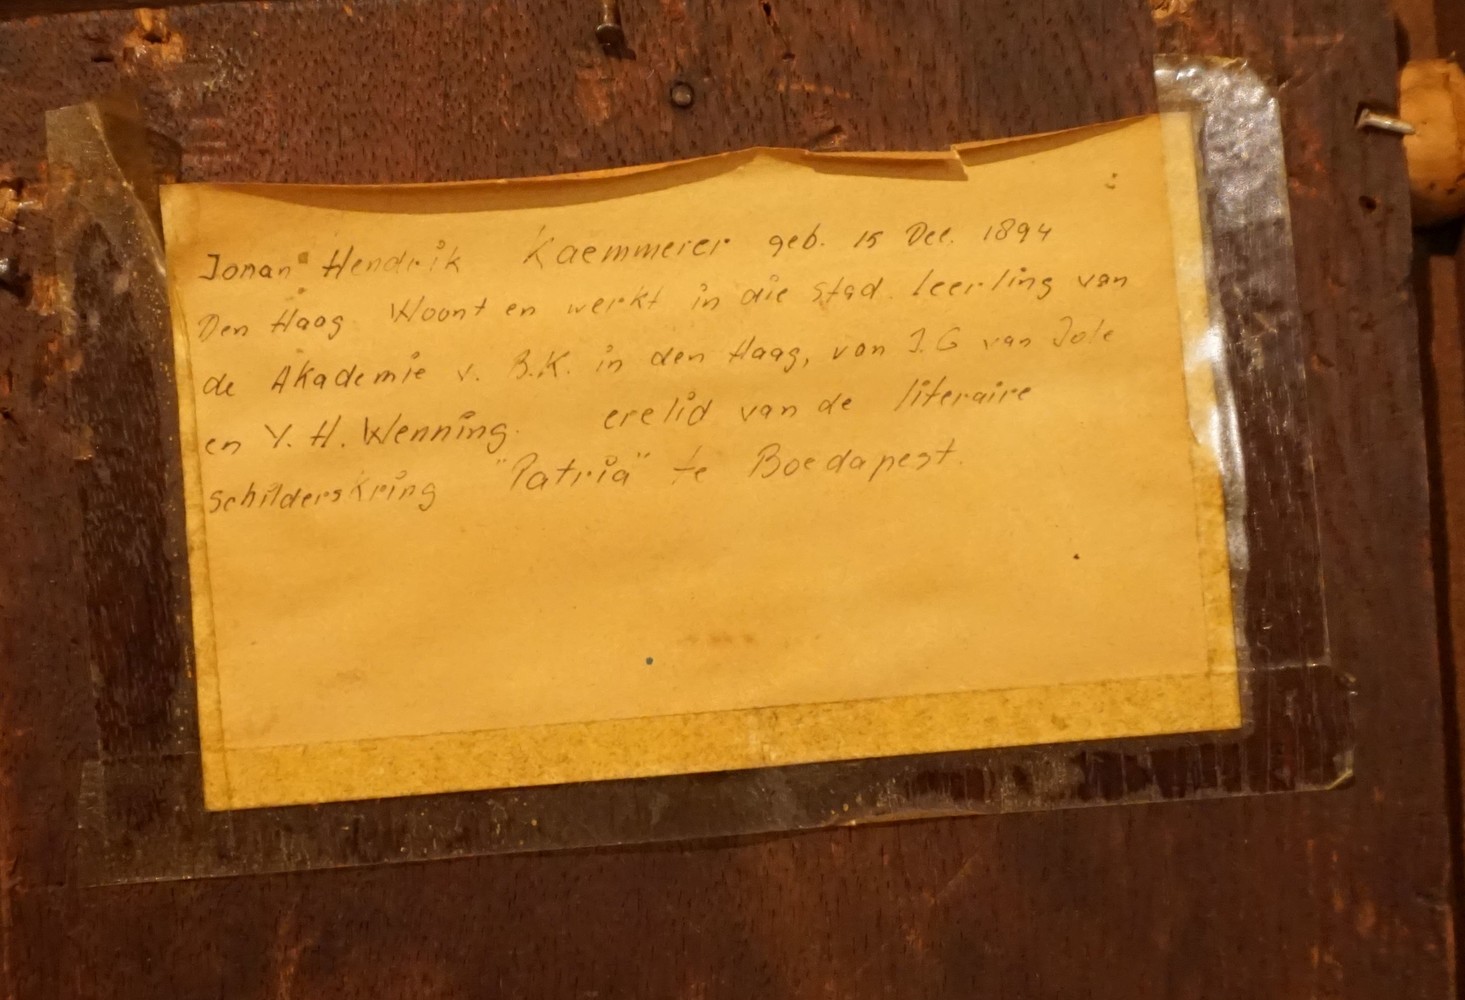 Johan Hendrik Kaemmerer geb. 15 Dec. 1894
Den Haag Woont en werkt in die stad. leerling van
de Akademie v. B.K. in den Haag, van J.G van
en Y. H. Wenning. erelid van de literaire
schilderskring "Patria" te Boedapest.